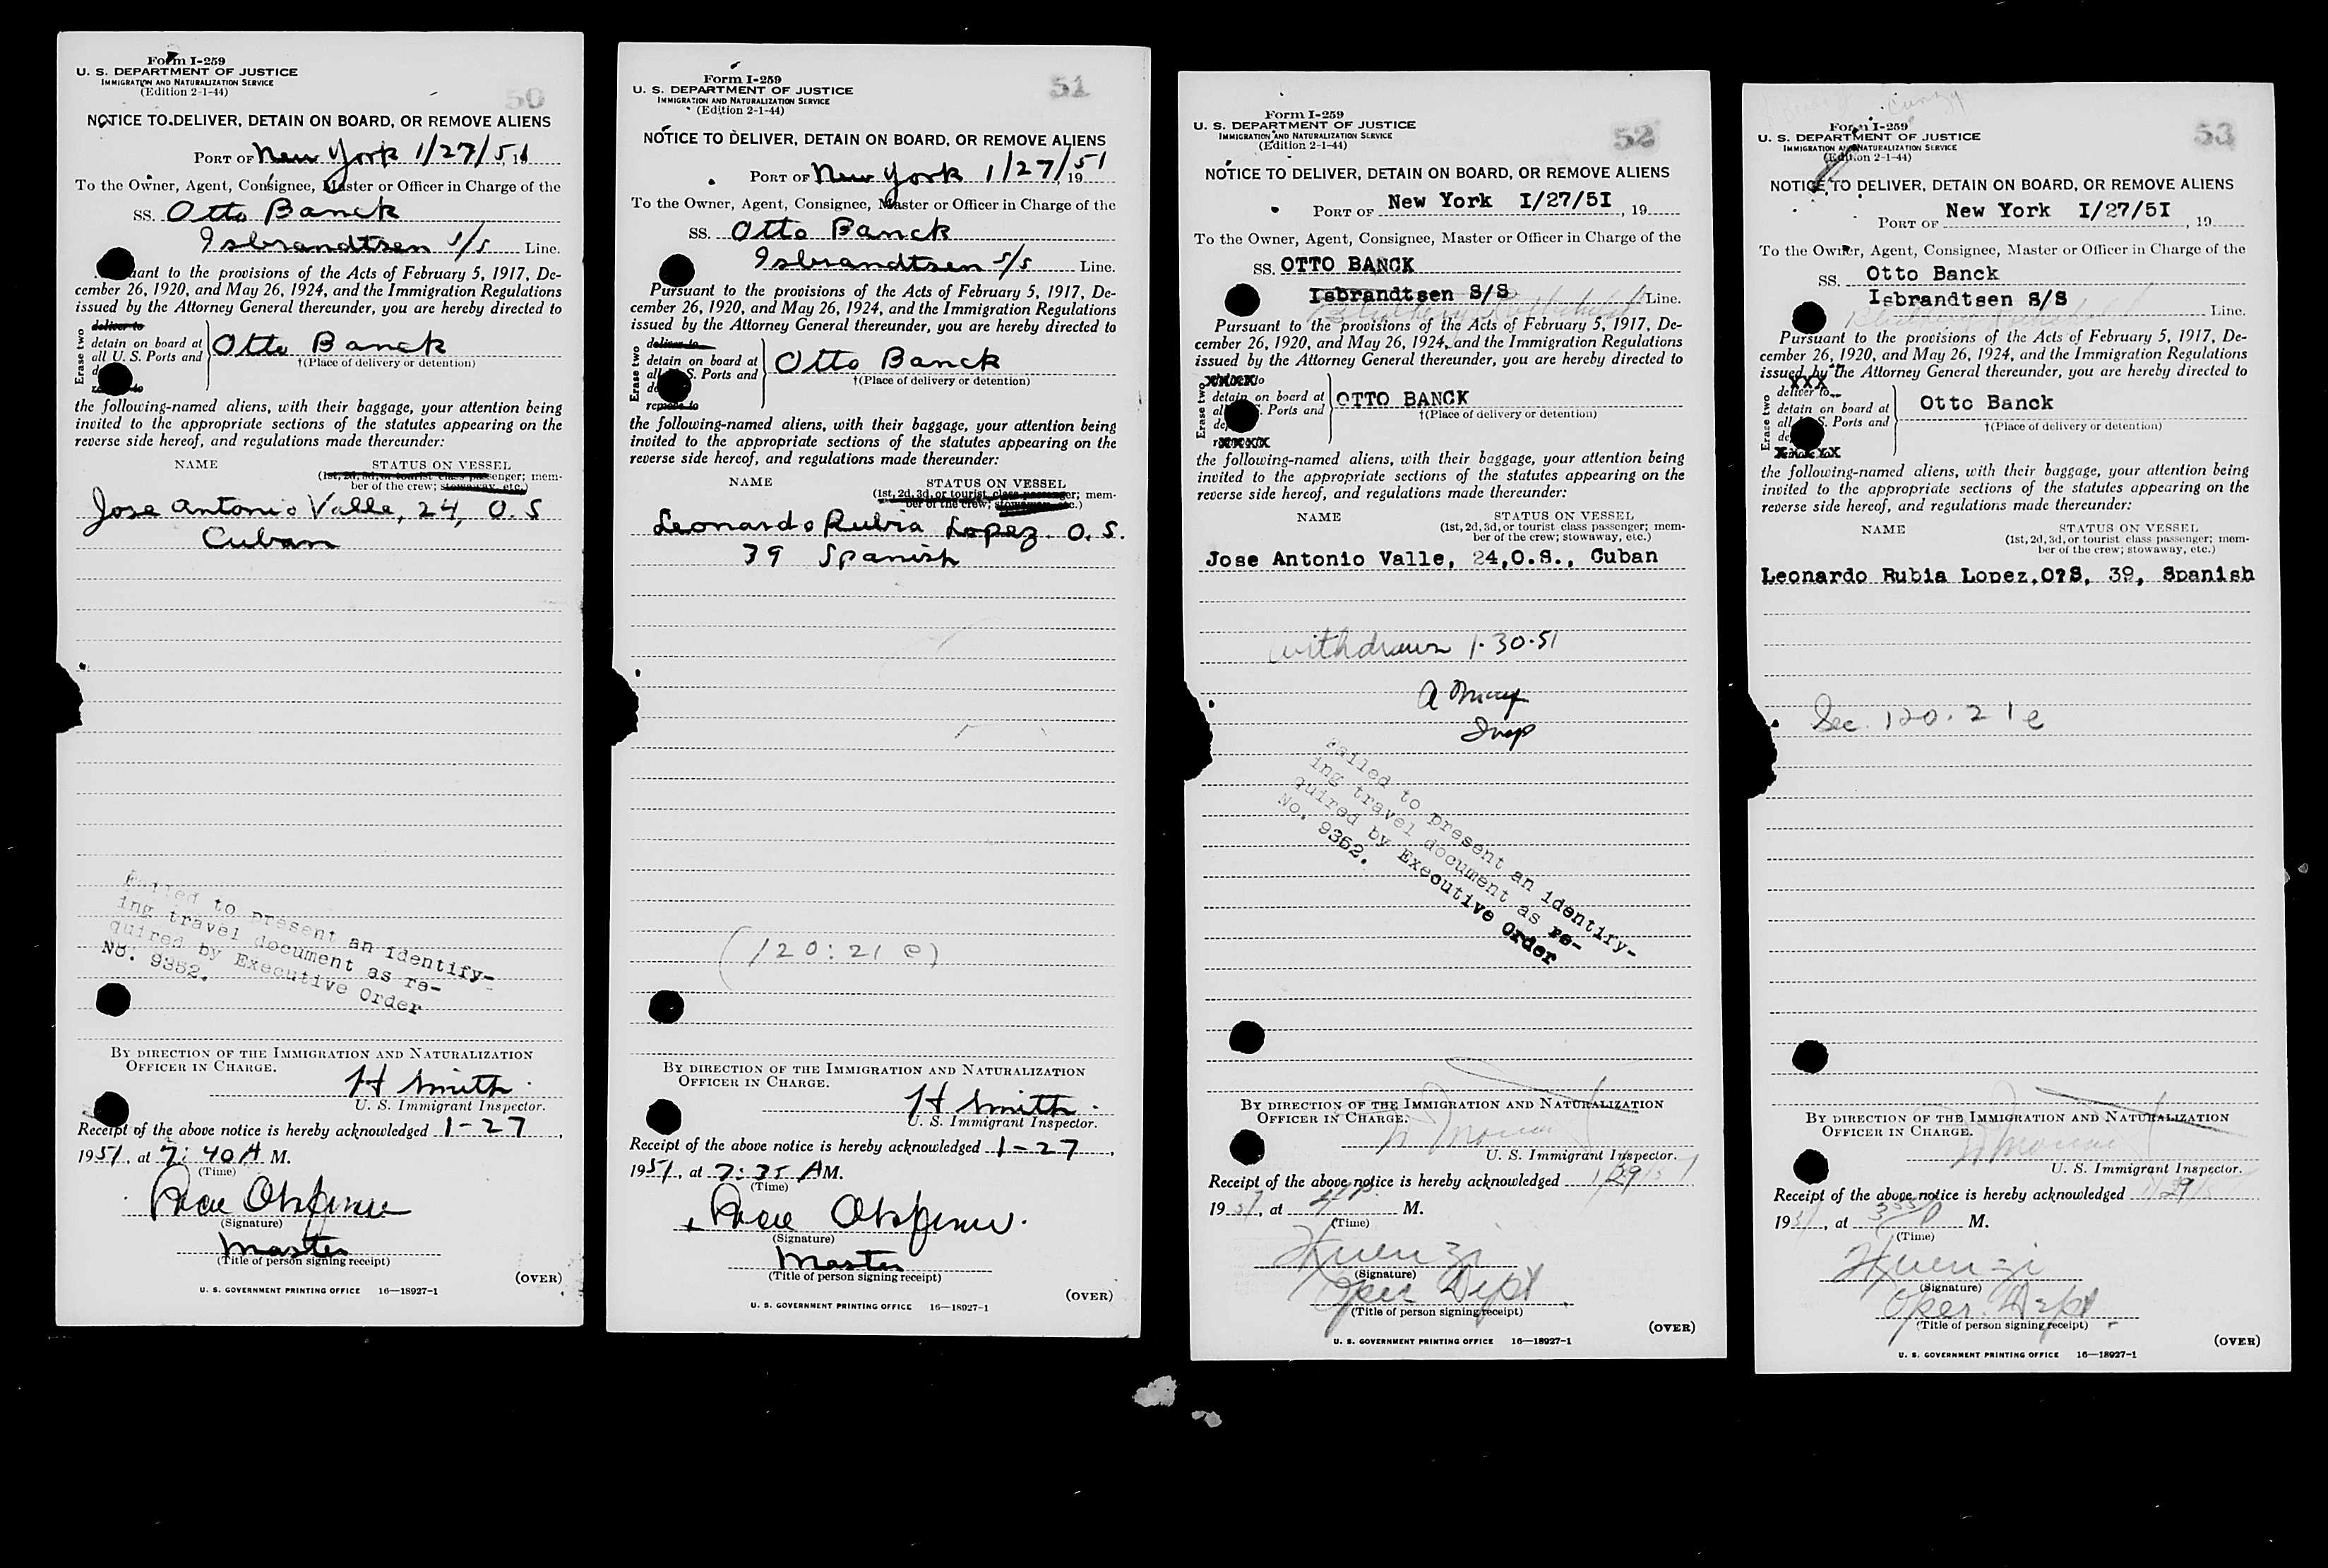 Form I-259
U. S. DEPARTMENT OF JUSTICE
IMMIGRATION AND NATURALIZATION SERVICE
(Edition 2-1-44)
50
NOTICE TO DELIVER, DETAIN ON BOARD, OR REMOVE ALIENS
PORT OF New York 1/27/51
To the Owner, Agent, Consignee, Master or Officer in Charge of the
SS. Otto Banck
Isbrandtsen S/S Line.
ant to the provisions of the Acts of February 5, 1917, De-
cember 26, 1920, and May 26, 1924, and the Immigration Regulations
issued by the Attorney General thereunder, you are hereby directed to
Erase two
deliver to
detain on board at
all U. S. Ports and
Otto Banck
†(Place of delivery or detention)
the following-named aliens, with their baggage, your attention being
invited to the appropriate sections of the statutes appearing on the
reverse side hereof, and regulations made thereunder:
NAME STATUS ON VESSEL
(1st, 2d, 3d, or tourist class passenger; mem-
ber of the crew; stowaway, etc.)
Jose Antonio Valle, 24, O.S
Cuban
Failed to present an identify-
ing travel document as re-
quired by Executive Order
No. 9352.
BY DIRECTION OF THE IMMIGRATION AND NATURALIZATION
OFFICER IN CHARGE.
H Smith
U. S. Immigrant Inspector.
Receipt of the above notice is hereby acknowledged 1-27,
1951, at 7:40 A M.
(Time)
(Signature)
Master
(Title of person signing receipt)
(OVER)
U. S. GOVERNMENT PRINTING OFFICE 16-18927-1
Form I-259
U. S. DEPARTMENT OF JUSTICE
IMMIGRATION AND NATURALIZATION SERVICE
(Edition 2-1-44)
51
NOTICE TO DELIVER, DETAIN ON BOARD, OR REMOVE ALIENS
PORT OF New York 1/27/51, 19
To the Owner, Agent, Consignee, Master or Officer in Charge of the
SS. Otto Banck
Isbrandtsen S/S Line.
Pursuant to the provisions of the Acts of February 5, 1917, De-
cember 26, 1920, and May 26, 1924, and the Immigration Regulations
issued by the Attorney General thereunder, you are hereby directed to
Erase two
deliver to
detain on board at
all S. Ports and
remove to
Otto Banck
†(Place of delivery or detention)
the following-named aliens, with their baggage, your attention being
invited to the appropriate sections of the statutes appearing on the
reverse side hereof, and regulations made thereunder:
NAME STATUS ON VESSEL
(1st, 2d, 3d, or tourist class passenger; mem-
ber of the crew; stowaway, etc.)
Leonardo Rubia Lopez. O.S.
39 Spanish
(120:21 e)
BY DIRECTION OF THE IMMIGRATION AND NATURALIZATION
OFFICER IN CHARGE.
H Smith
U. S. Immigrant Inspector.
Receipt of the above notice is hereby acknowledged 1-27,
1951, at 7:35 A M.
(Time)
(Signature)
Master
(Title of person signing receipt)
(OVER)
U. S. GOVERNMENT PRINTING OFFICE 16-18927-1
Form I-259
U. S. DEPARTMENT OF JUSTICE
IMMIGRATION AND NATURALIZATION SERVICE
(Edition 2-1-44)
52
NOTICE TO DELIVER, DETAIN ON BOARD, OR REMOVE ALIENS
PORT OF New York I/27/5I, 19
To the Owner, Agent, Consignee, Master or Officer in Charge of the
SS. OTTO BANCK
Isbrandtsen S/S Line.
Pursuant to the provisions of the Acts of February 5, 1917, De-
cember 26, 1920, and May 26, 1924, and the Immigration Regulations
issued by the Attorney General thereunder, you are hereby directed to
Erase two
detain on board at
S. Ports and
OTTO BANCK
†(Place of delivery or detention)
the following-named aliens, with their baggage, your attention being
invited to the appropriate sections of the statutes appearing on the
reverse side hereof, and regulations made thereunder:
NAME STATUS ON VESSEL
(1st, 2d, 3d, or tourist class passenger; mem-
ber of the crew; stowaway, etc.)
Jose Antonio Valle, 24,O.S., Cuban
withdrawn 1-30-51
Insp
Failed to present an identify-
ing travel document as re-
quired by Executive Order
No. 9352.
BY DIRECTION OF THE IMMIGRATION AND NATURALIZATION
OFFICER IN CHARGE.
U. S. Immigrant Inspector.
Receipt of the above notice is hereby acknowledged 1/29/51
1951, at 4 P. M.
(Time)
(Signature)
Oper Dept
(Title of person signing receipt)
(OVER)
U. S. GOVERNMENT PRINTING OFFICE 16-18927-1
Form I-259
U. S. DEPARTMENT OF JUSTICE
IMMIGRATION AND NATURALIZATION SERVICE
(Edition 2-1-44)
53
NOTICE TO DELIVER, DETAIN ON BOARD, OR REMOVE ALIENS
PORT OF New York I/27/5I, 19
To the Owner, Agent, Consignee, Master or Officer in Charge of the
SS. Otto Banck
Isbrandtsen S/S Line.
Pursuant to the provisions of the Acts of February 5, 1917, De-
cember 26, 1920, and May 26, 1924, and the Immigration Regulations
issued by the Attorney General thereunder, you are hereby directed to
XXX
Erase two
deliver to
detain on board at
all S. Ports and
Otto Banck
†(Place of delivery or detention)
the following-named aliens, with their baggage, your attention being
invited to the appropriate sections of the statutes appearing on the
reverse side hereof, and regulations made thereunder:
NAME STATUS ON VESSEL
(1st, 2d, 3d, or tourist class passenger; mem-
ber of the crew; stowaway, etc.)
Leonardo Rubia Lopez,O?S, 39, Spanish
Sec. 120.21e
BY DIRECTION OF THE IMMIGRATION AND NATURALIZATION
OFFICER IN CHARGE.
U. S. Immigrant Inspector.
Receipt of the above notice is hereby acknowledged 1/29/51
1951, at 3:55 P M.
(Time)
(Signature)
Oper. Dept.
(Title of person signing receipt)
(OVER)
U. S. GOVERNMENT PRINTING OFFICE 16-18927-1